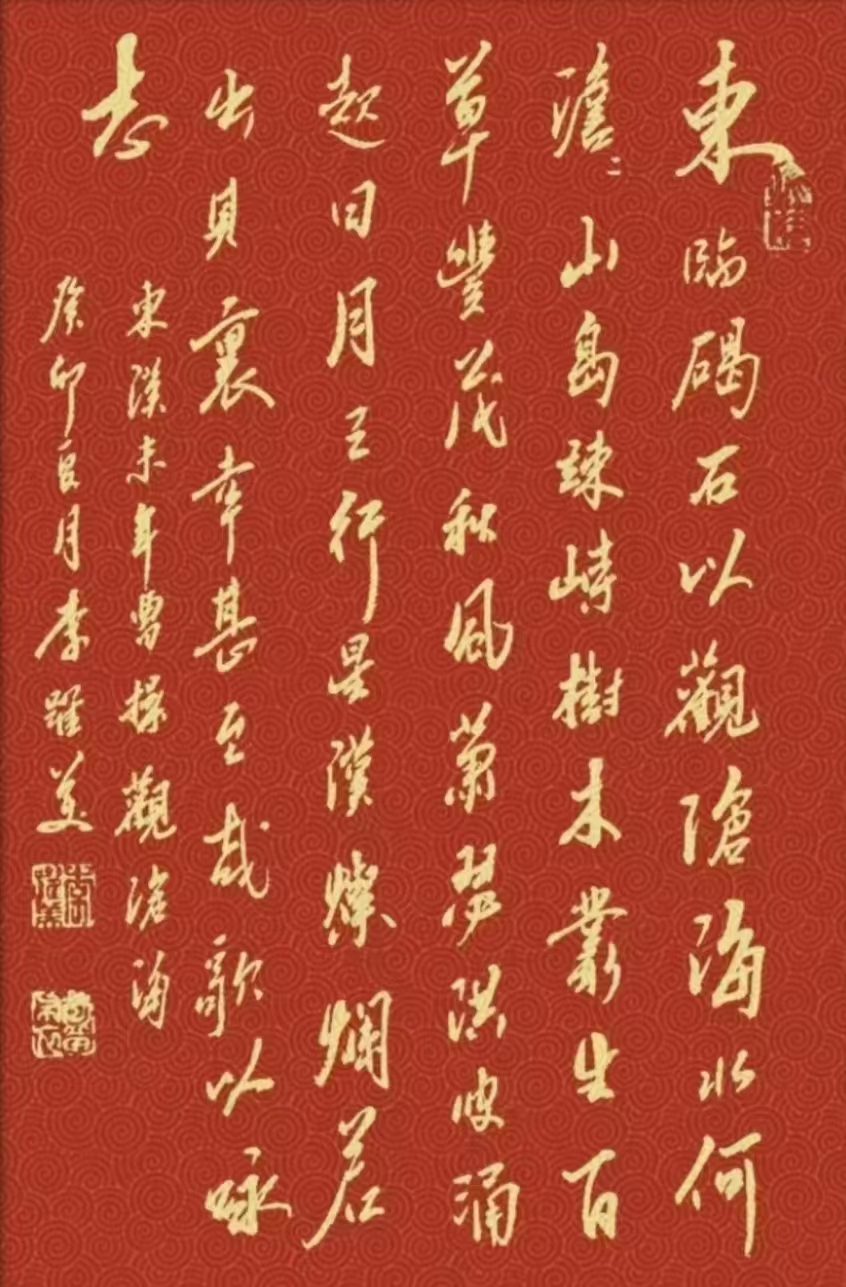 東臨碣石以觀滄海水何
澹二山島竦峙樹木叢生百
草豐茂秋風蕭瑟洪波涌
起日月之行星漢燦爛若
出其裏幸甚至哉歌以咏
志
東漢末年曹操觀滄海
癸卯良月李躍美